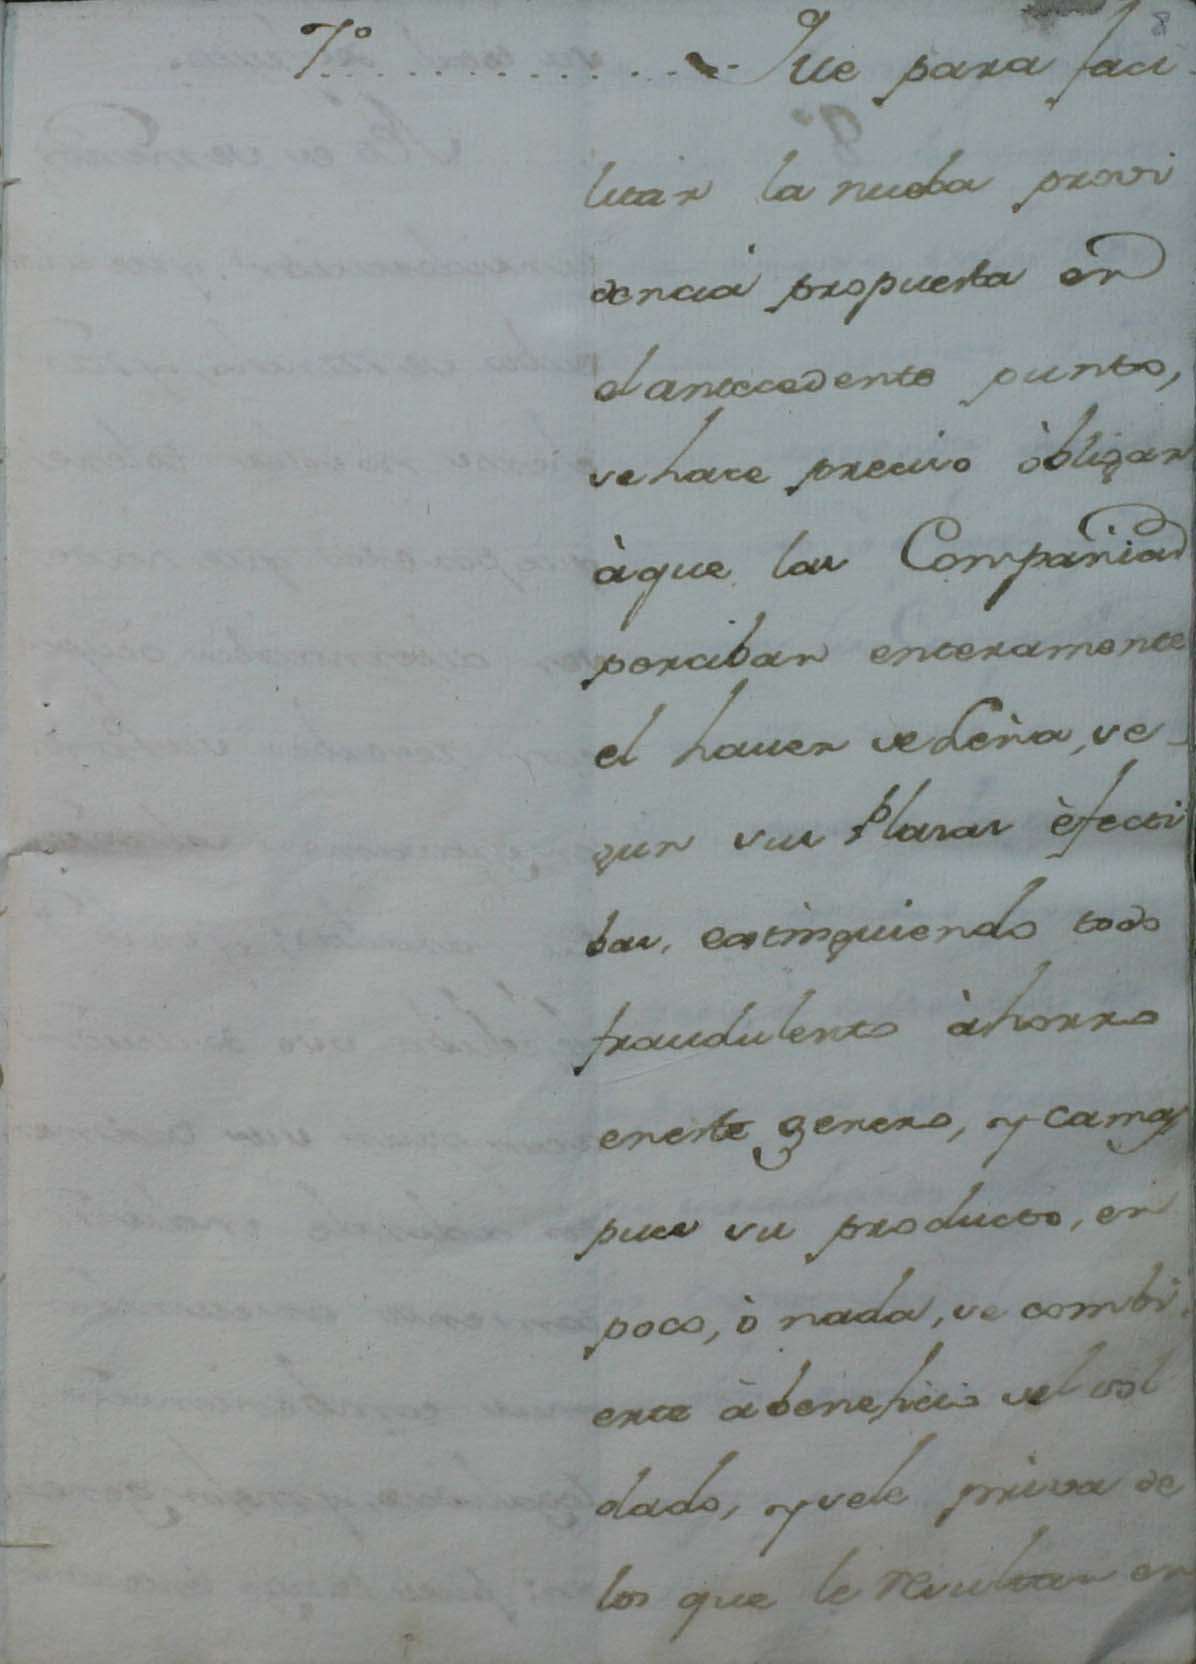 8
7º . . . . . . . . . . . . . . Que para faci-
litar la nueba provi
dencia propuesta èn
el antecedente punto,
se hace preciso òbligar
àque las Compañias
perciban enteramente
el haver de Leña, se-
gun sus Plasas èfecti
bas, extinguiendo todo
fraudulento àhorro
en este genero, y
pues su producto, en
poco, ò nada, se combi-
erte àbeneficio del sol
dado, y sele priva de
los que le resultan en